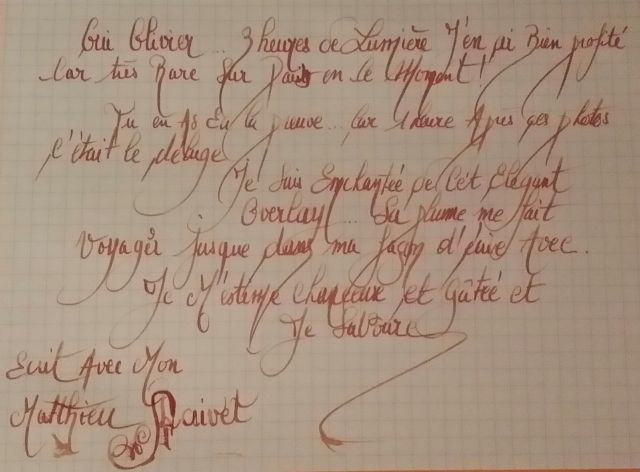 Oui Olivier ... 3 heures de Lumière J'en ai Bien profité
Car très Rare Sur Paris en ce Moment !
Tu en As Eu la preuve ... Car 1 heure Après ces photos
c'était le déluge
Je Suis Enchantée de Cet Élégant
Overlay ... Sa plume me fait
Voyager jusque dans ma façon d'écrire Avec.
Je M'estime chanceuse et gâtée et
Je Savoure
Ecrit Avec Mon
Matthieu